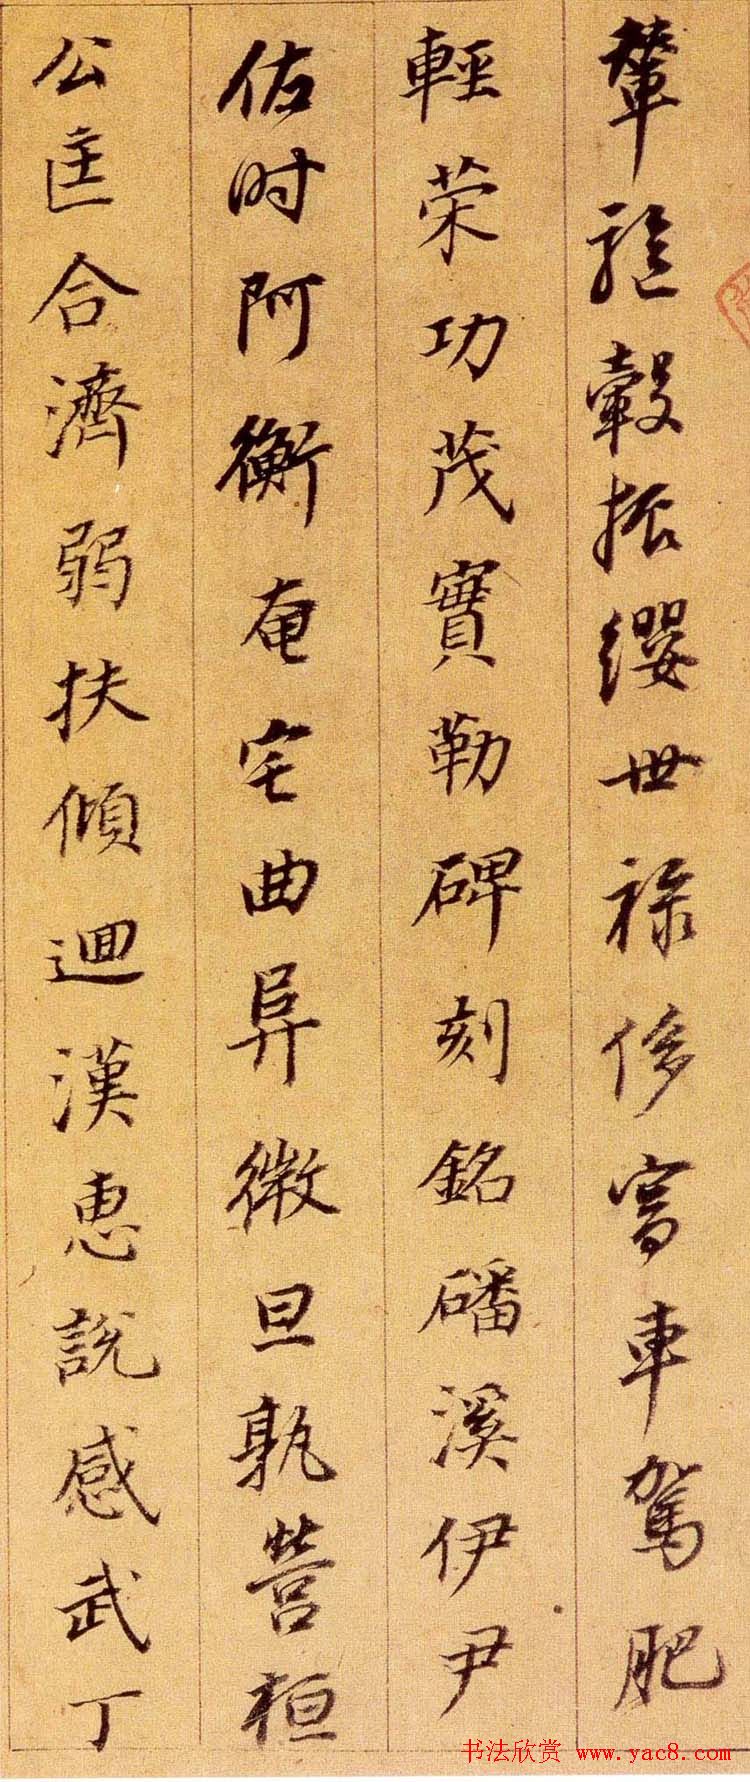 輦驅轂振纓世祿侈富車駕肥
輕荣功茂實勒碑刻銘磻溪伊尹
佐时阿衡奄宅曲阜微旦孰營桓
公匡合濟弱扶傾迴漢惠說感武丁
书法欣赏 www.yac8.com